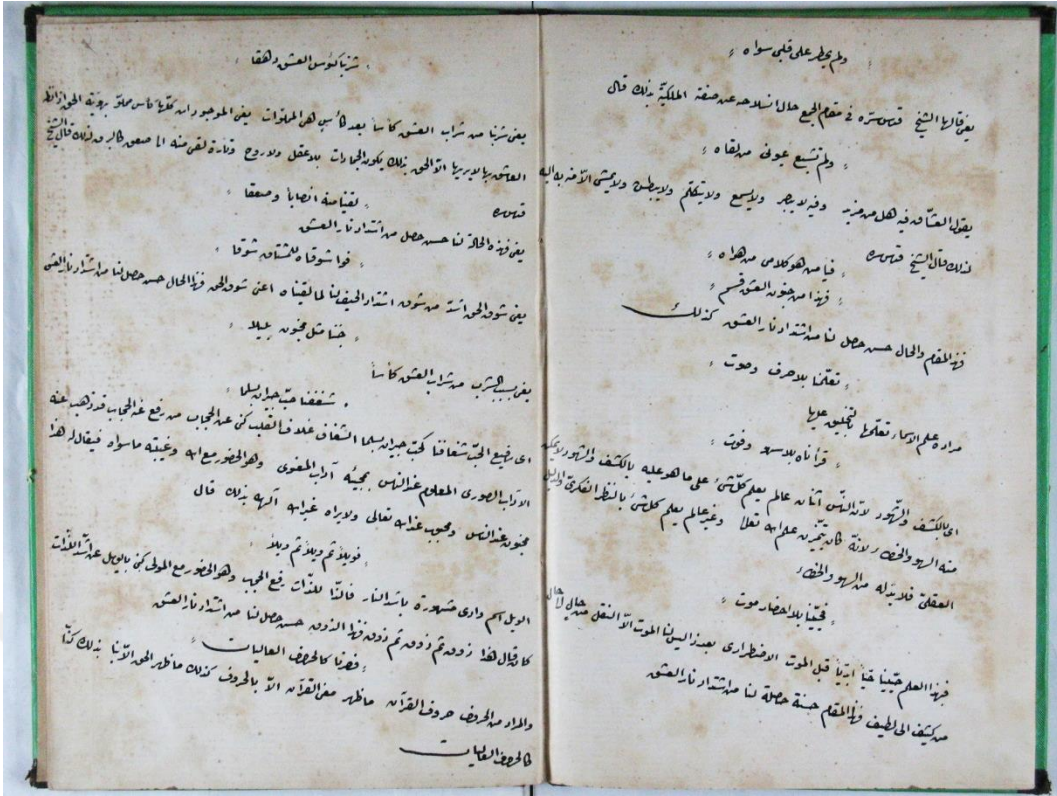 ولم يخطر على قلبي سواه
يعني قالها الشيخ قدس سره في مقام الجمع حال انسلاخه عن صفة الملكية بذلك قال
ولم تشبع عيوني من لقاه
يقول العشاق فيه هل من مزيد وفيه لا يبصر ولا يسمع ولا يتكلم ولا يبطش ولا يمشي الا فيه به اليه
لذلك قال الشيخ قدس سره
فيا من هو كلامي من هواه
فهذا من جنون العشق قسم
فهذا المقام والحال حسن حصل لنا من اشتداد نار العشق كذلك
تعلمنا بلا حرف وصوت
مراده علم الاسماء تعلمها بالتخليق عليها
قرأناه بلا سهو وفوت
اي بالكشف والشهود لان الناس اثنان عالم يعلم كل شيء على ما هو عليه بالكشف والشهود لا يمكن
منه السهو والخطاء لانه كان من علم الله تعالى وغير عالم يعلم كل شيء بالنظر الفكري والدليل
العقلي فلا بد له من السهو والخطاء
فحيينا بلا احضار موت
فهذا العلم حيينا حيا ابديا قبل الموت الاضطراري بعده ليس لنا الموت الا النقل من حال الى حال
من كثيف الى لطيف فهذا المقام حسنة حاصلة لنا من اشتداد نار العشق
شربنا كؤوس العشق دهقا
يعني شربنا من شراب العشق كاسا بعد كأس هي المملوات يعني الموجودات كلها كأس مملو برؤية الحق اذا نظر
العاشق بها لا يرى بها الا الحق بذلك يكون الجمادات بلا عقل ولا روح وتارة لقي منه الما صعق كالبرق ولذلك قال الشيخ
قدس سره لقينا منه انصابا وصعقا
يعني فهذه الحالة لنا حسن حصل من اشتداد نار العشق
فوا شوقاه للمشتاق شوقا
يعني شوق الحق اشد من شوق لنا لما لقيناه اعني شوق الحق فهذا الحال حسن حصل لنا من اشتداد نار العشق
جننا مثل مجنون بليلا
يعني بسبب الشرب من شراب العشق كاسا
شغفنا حب جيران بسلما
اي رضيع الحب شغافنا كحب جيران بسلما الشغاف غلاف القلب كنى عن الحجاب من رفع عنه الحجاب قد ذهب عنه
الآداب الصوري المعلوم عند الناس بمجيئه آداب المعنوي وهو الحضور مع الله وغيبته ما سواه فيقال له هذا
مجنون عند الناس ومحبوب عند الله تعالى ولا يراه غير الله اله بذلك قال
فويلا ثم ويلا ثم ويلا
الويل اسم وادي مشهورة باشد النار فالذ اللذات رفع الحجب وهو الحضور مع المولى كنى بالويل عن اشد اللذات
كان يقال هذا ذوق ثم ذوق ثم ذوق فهذا الذوق حسن حصل لنا من اشتداد نار العشق
فصرنا كالحروف العاليات
والمراد من الحروف حروف القرآن ما ظهر معنى القرآن الا بالحروف كذلك ما ظهر الحق الا بنا بذلك كنا
كالحروف العاليات